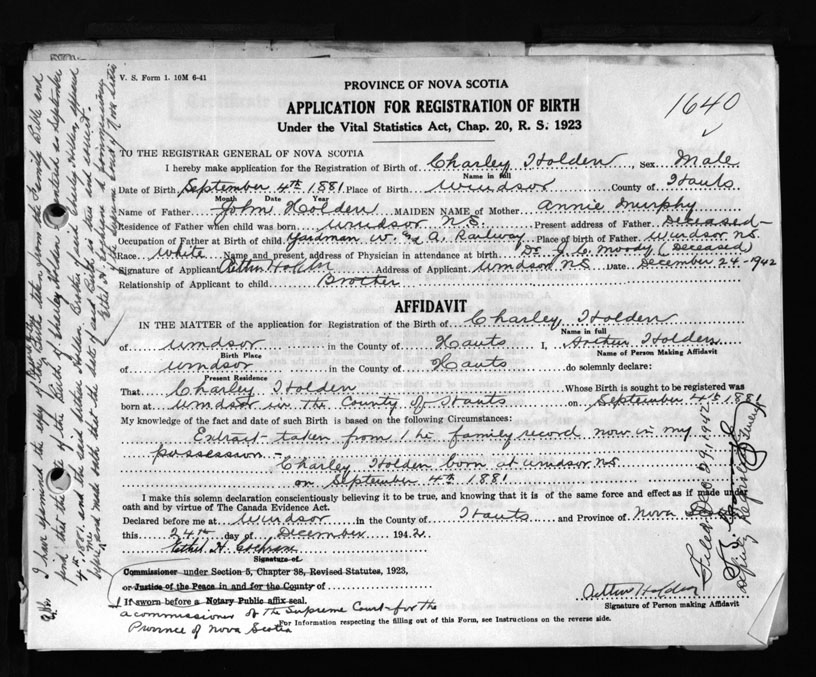 V. S. Form 1. 10M 6-41
PROVINCE OF NOVA SCOTIA
APPLICATION FOR REGISTRATION OF BIRTH
Under the Vital Statistics Act, Chap. 20, R. S. 1923
1640
TO THE REGISTRAR GENERAL OF NOVA SCOTIA
I hereby make application for Registration of Birth of Charley Holden, Sex Male
Name in full
Date of Birth September 4th 1881 Place of Birth Windsor County of Hants
Month Date Year
Name of Father John Holden MAIDEN NAME of Mother Annie Murphy
Residence of Father when child was born Windsor N.S. Present address of Father Deceased
Occupation of Father at Birth of child Yardman W. & A. Railway Place of birth of Father Windsor N.S.
Race White Name and present address of Physician in attendance at birth Dr J. C. Moody (Deceased)
Signature of Applicant Arthur Holden Address of Applicant Windsor N.S. Date December 24-1942
Relationship of Applicant to child Brother
AFFIDAVIT
IN THE MATTER of the application for Registration of the Birth of Charley Holden
Name in full
of Windsor in the County of Hants I, Arthur Holden
Birth Place Name of Person Making Affidavit
of Windsor in the County of Hants do solemnly declare:
Present Residence
That Charley Holden Whose Birth is sought to be registered was
born at Windsor in the County of Hants on September 4th 1881
My knowledge of the fact and date of such Birth is based on the following Circumstances:
Extract taken from the family record now in my
possession.-
Charley Holden born at Windsor N.S.
on September 4th 1881
I make this solemn declaration conscientiously believing it to be true, and knowing that it is of the same force and effect as if made under
oath and by virtue of The Canada Evidence Act.
Declared before me at Windsor in the County of Hants and Province of Nova Scotia
this 24th day of December 1942
Ethel H. Cochran
Signature of
Commissioner under Section 5, Chapter 38, Revised Statutes, 1923,
or Justice of the Peace in and for the County of
If sworn before a Notary Public affix seal.
a commissioner of the Supreme Court for the
Province of Nova Scotia
Arthur Holden
Signature of Person making Affidavit
For Information respecting the filling out of this Form, see Instructions on the reverse side.
Filed Dec 29, 1942
Deputy Registrar General
I have examined the copy of the Births taken from the Family Bible and
find that the date of the Birth of Charley Holden stated as September
4th 1881, and the said Arthur Holden Brother of said Charley Holden, appeared
before me and made oath that the date of said Birth is true and correct.